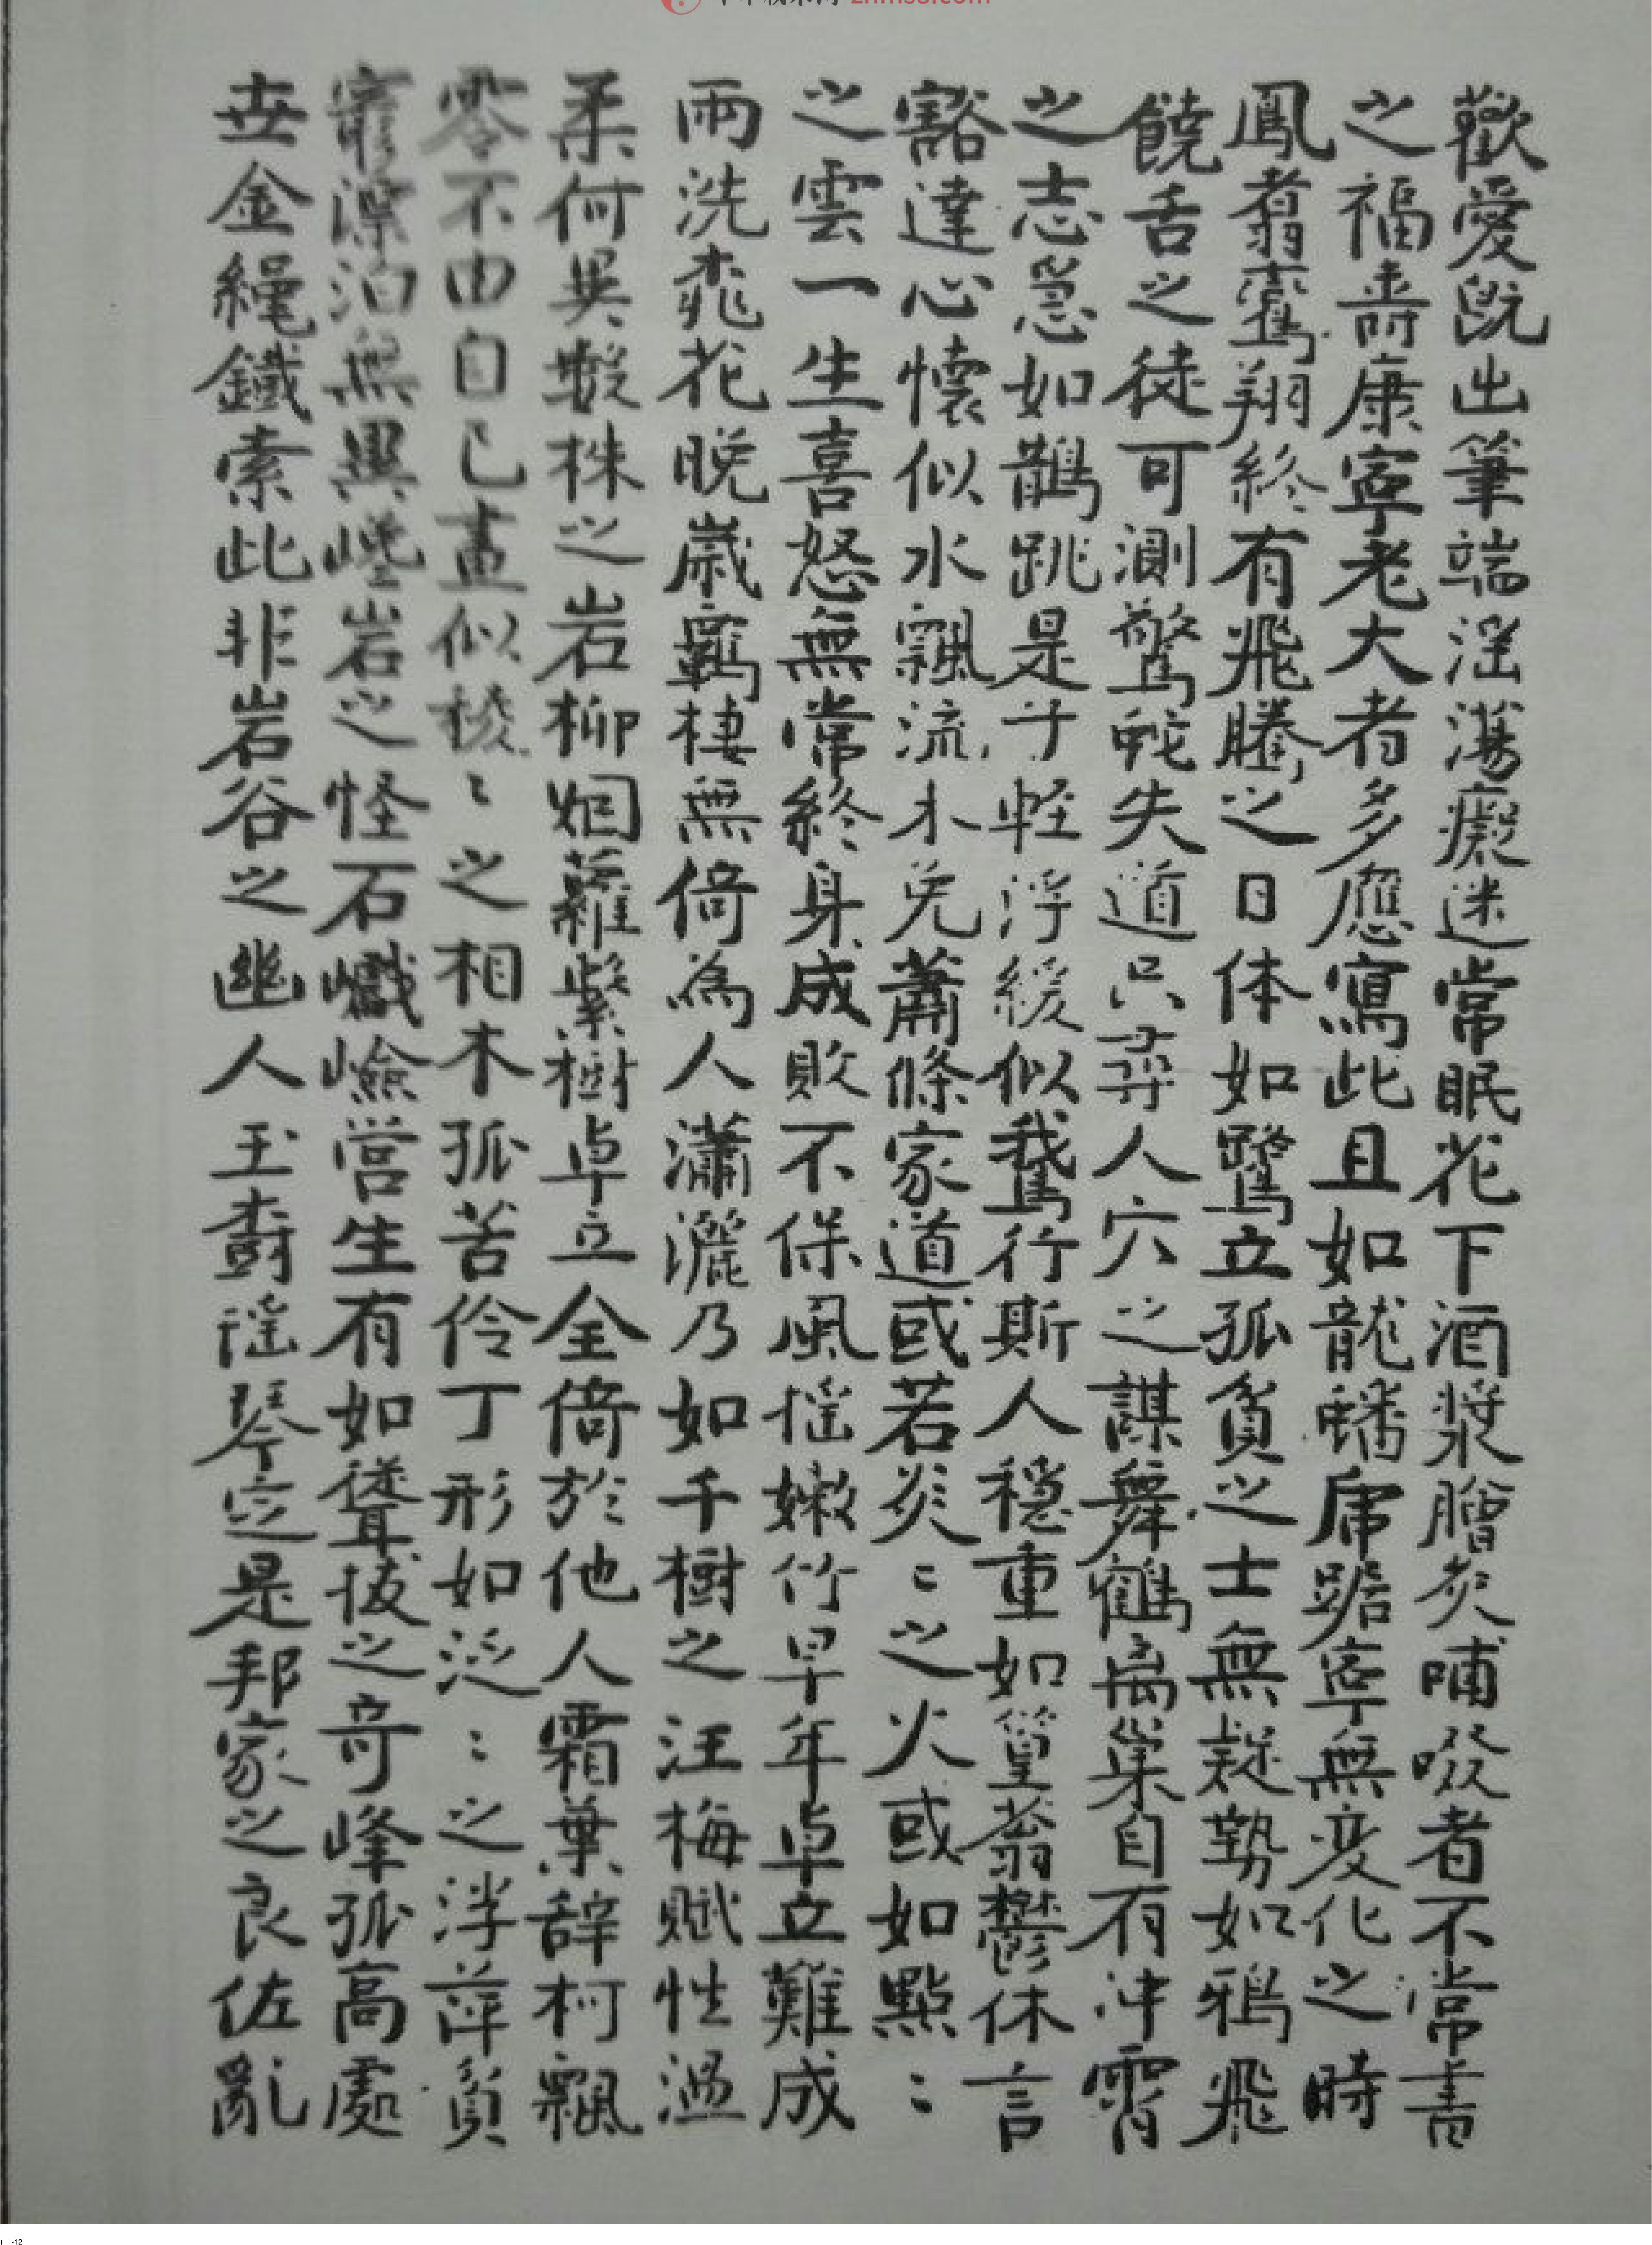 歡愛既出筆端淫蕩癡迷常眠花下酒漿膾炙哺啜者不常書
之福壽康寧老大者多應寫此且如龍蟠虎踞寧無变化之時
鳳翥鸞翔終有飛騰之日体如鷺立孤貧之士無疑勢如鴉飛
饒舌之徒可測驚蛇失道只尋人穴之謀舞鶴离巢自有冲霄
之志急如鵲跳是子輕浮緩似鵞行斯人穩重如篁蓊鬱休言
豁達心懷似水飄流木免蕭條家道或若炎〻之火或如點〻
之雲一生喜怒無常終身成敗不保風摇嫩竹早年卓立難成
雨洗桃花晚歲羈棲無倚為人瀟灑乃如千樹之汪梅賦性温
柔何異數株之岩柳烟蘿縈樹卓立全倚於他人霜葉辞柯飄
零不由自已畫似枝〻之相木孤苦伶丁形如泛〻之浮萍貧
窮漂泊無異嵯岩之怪石巇嶮営生有如聳拔之竒峰孤高處
世金繩鐵索此非岩谷之幽人玉軫谣琴定是邦家之良佐亂
11-12